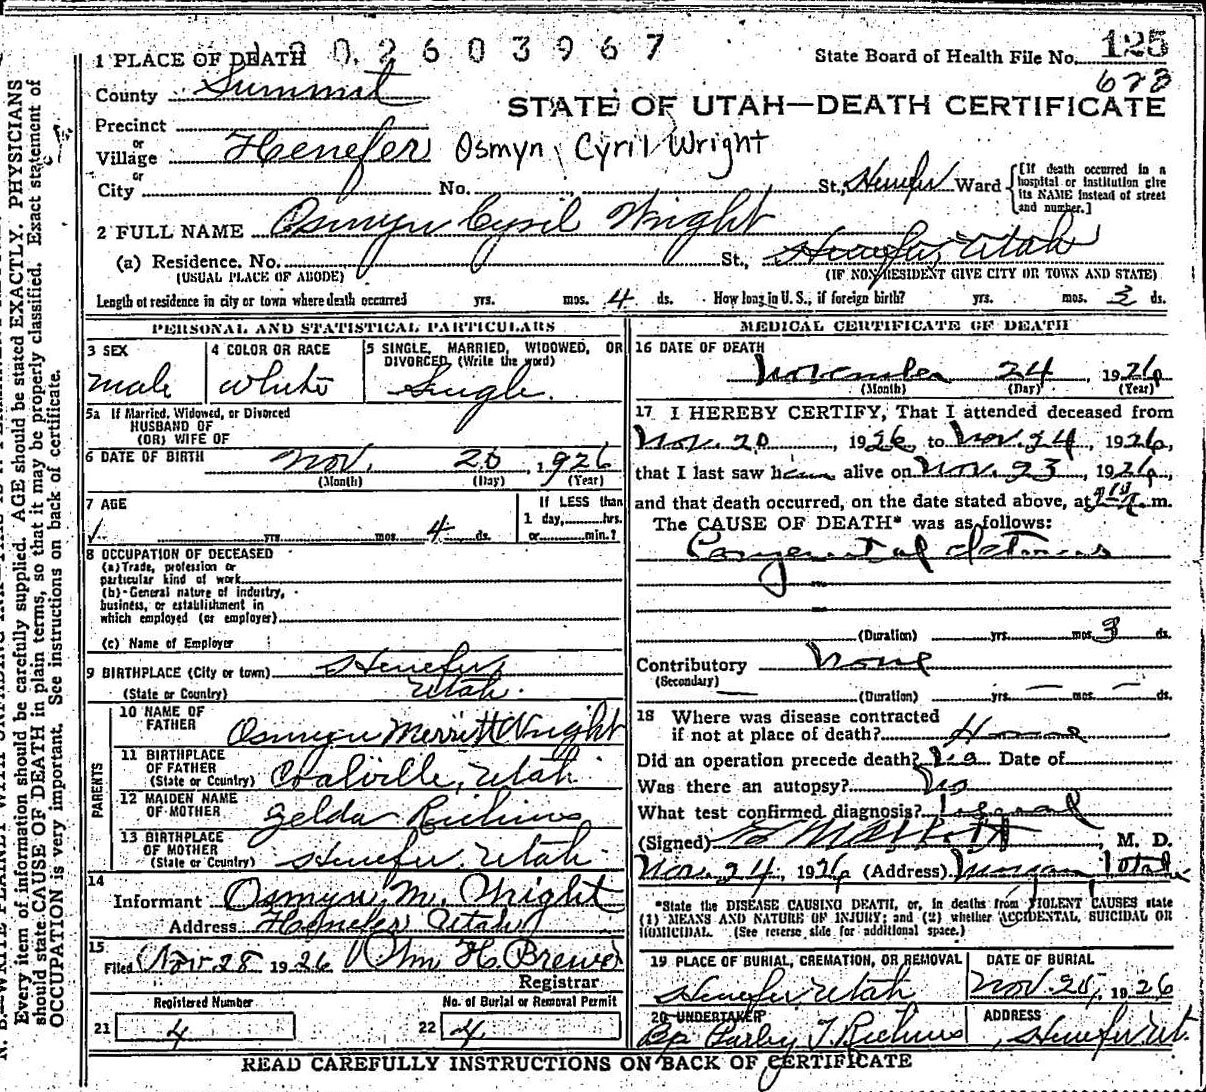 1 PLACE OF DEATH 02603967 State Board of Health File No. 125
County Summit 623
STATE OF UTAH—DEATH CERTIFICATE
Precinct
or
Village Henefer Osmyn Cyril Wright
or
City No. St., Henefer Ward [If death occurred in a hospital or institution give its NAME instead of street and number.]
2 FULL NAME Osmyn Cyril Wright
(a) Residence. No. St., Henefer, Utah
(USUAL PLACE OF ABODE) (IF NON-RESIDENT GIVE CITY OR TOWN AND STATE)
Length of residence in city or town where death occurred yrs. mos. 4 ds. How long in U.S., if foreign birth? yrs. mos. 3 ds.
PERSONAL AND STATISTICAL PARTICULARS
3 SEX
male
4 COLOR OR RACE
White
5 SINGLE, MARRIED, WIDOWED, OR
DIVORCED, (Write the word)
Single
5a If Married, Widowed, or Divorced
HUSBAND OF
(OR) WIFE OF
6 DATE OF BIRTH Nov. 20, 1926
(Month) (Day) (Year)
7 AGE
yrs. mos. 4 ds.
If LESS than
1 day, hrs.
or min.?
8 OCCUPATION OF DECEASED
(a) Trade, profession or
particular kind of work
(b) General nature of industry,
business, or establishment in
which employed (or employer)
(c) Name of Employer
9 BIRTHPLACE (City or town) Henefer
(State or Country) Utah.
PARENTS
10 NAME OF
FATHER Osmyn Merritt Wright
11 BIRTHPLACE
OF FATHER
(State or Country) Coalville, Utah
12 MAIDEN NAME
OF MOTHER Zelda Richins
13 BIRTHPLACE
OF MOTHER
(State or Country) Henefer, Utah
14
Informant Osmyn M. Wright
Address Henefer Utah
15
Filed Nov 28 1926 Wm H. Brewer
Registrar
Registered Number No. of Burial or Removal Permit
21 4 22 4
MEDICAL CERTIFICATE OF DEATH
16 DATE OF DEATH
November 24, 1926
(Month) (Day) (Year)
17 I HEREBY CERTIFY, That I attended deceased from
Nov. 20, 1926, to Nov. 24, 1926,
that I last saw him alive on Nov. 23, 1926,
and that death occurred, on the date stated above, at m.
The CAUSE OF DEATH* was as follows:
Congenital Icterus
(Duration) yrs. mos. 3 ds.
Contributory None
(Secondary)
(Duration) yrs. mos. ds.
18 Where was disease contracted
if not at place of death? Home
Did an operation precede death? No Date of
Was there an autopsy? No
What test confirmed diagnosis?
(Signed) M. D.
Nov. 24, 1926 (Address) Morgan Utah
*State the DISEASE CAUSING DEATH, or, in deaths from VIOLENT CAUSES state
(1) MEANS AND NATURE OF INJURY; and (2) whether ACCIDENTAL, SUICIDAL OR
HOMICIDAL. (See reverse side for additional space.)
19 PLACE OF BURIAL, CREMATION, OR REMOVAL
Henefer Utah
DATE OF BURIAL
Nov. 25, 1926
20 UNDERTAKER
Bp Parley T. Richins
ADDRESS
Henefer Ut.
READ CAREFULLY INSTRUCTIONS ON BACK OF CERTIFICATE
Every item of information should be carefully supplied. AGE should be stated EXACTLY. PHYSICIANS
should state CAUSE OF DEATH in plain terms, so that it may be properly classified. Exact statement of
OCCUPATION is very important. See instructions on back of certificate.